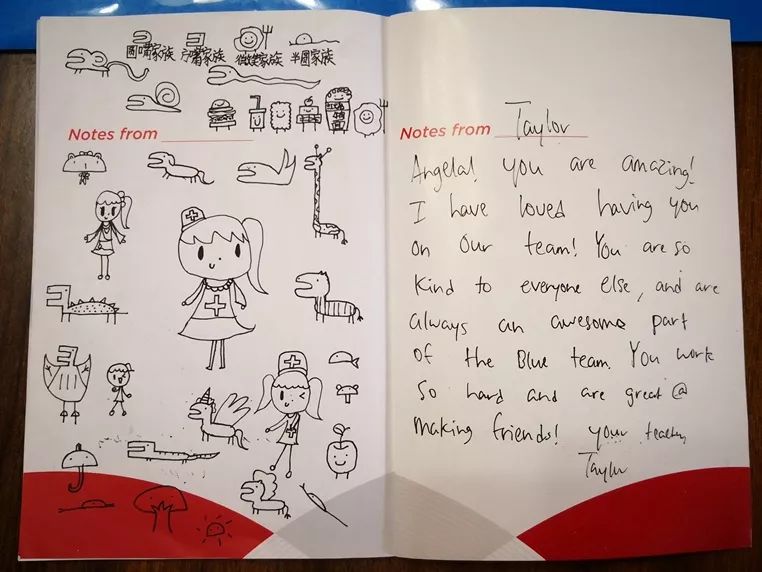 圆嘴家族 方嘴家族 微笑家族 半圆家族
Notes from
Notes from Taylor
Angela! you are amazing!
I have loved having you
on our team! You are so
kind to everyone else, and are
always an awesome part
of the Blue team. You work
so hard and are great @
making friends! your teacher,
Taylor